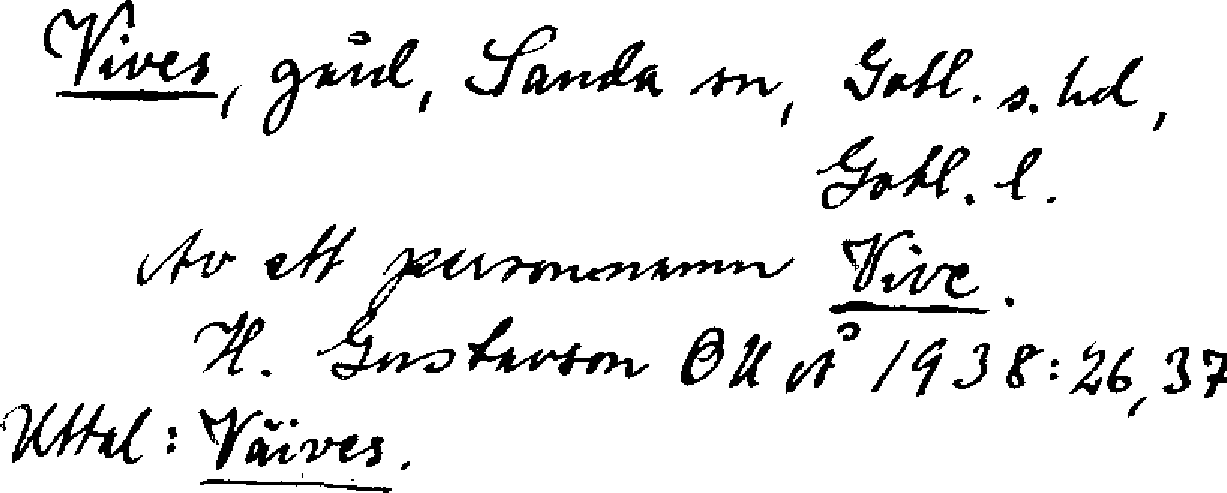 Vives, gård, Sanda sn, Gotl. s. hd,
Gotl. l.
Av ett personnamn Vive.
H. Gustavson OUÅ 1938:26,37
Uttal: Väives.